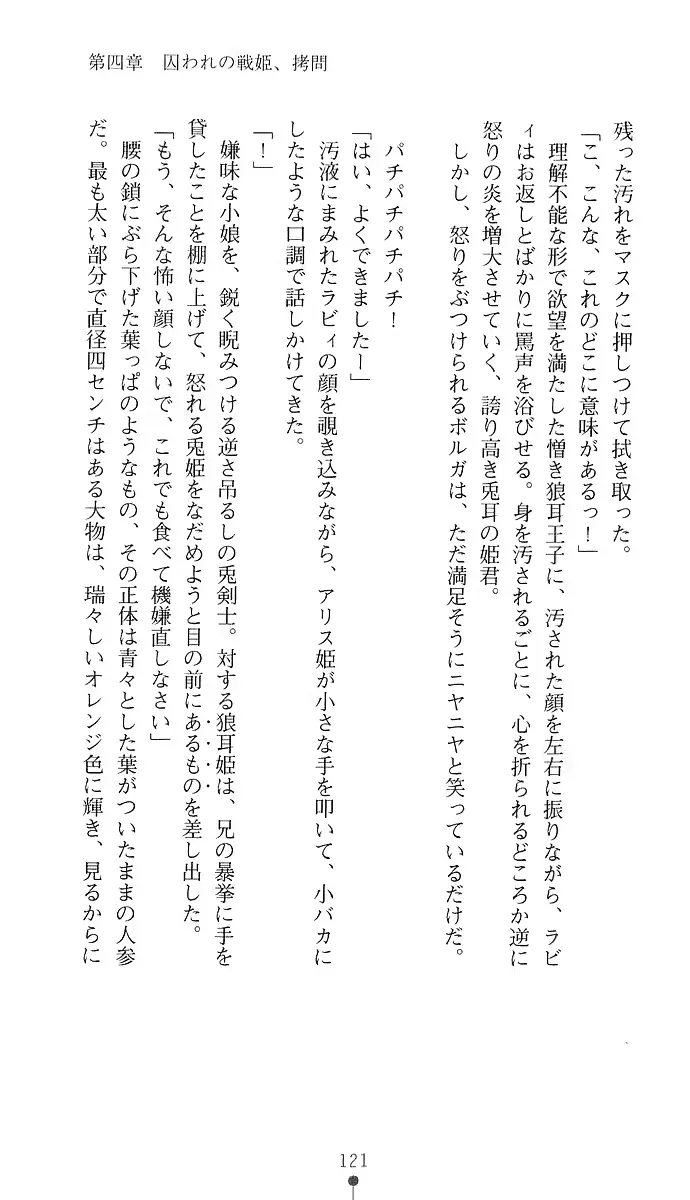 第四章　囚われの戦姫、拷問
残った汚れをマスクに押しつけて拭き取った。
「こ、こんな、これのどこに意味があるっ！」
　理解不能な形で欲望を満たした憎き狼耳王子に、汚された顔を左右に振りながら、ラビ
ィはお返しとばかりに罵声を浴びせる。身を汚されるごとに、心を折られるどころか逆に
怒りの炎を増大させていく、誇り高き兎耳の姫君。
　しかし、怒りをぶつけられるボルガは、ただ満足そうにニヤニヤと笑っているだけだ。
　パチパチパチパチ！
「はい、よくできましたー」
　汚液にまみれたラビィの顔を覗き込みながら、アリス姫が小さな手を叩いて、小バカに
したような口調で話しかけてきた。
「！」
　嫌味な小娘を、鋭く睨みつける逆さ吊るしの兎剣士。対する狼耳姫は、兄の暴挙に手を
貸したことを棚に上げて、怒れる兎姫をなだめようと目の前にあるものを差し出した。
「もう、そんな怖い顔しないで、これでも食べて機嫌直しなさい」
　腰の鎖にぶら下げた葉っぱのようなもの、その正体は青々とした葉がついたままの人参
だ。最も太い部分で直径四センチはある大物は、瑞々しいオレンジ色に輝き、見るからに
121